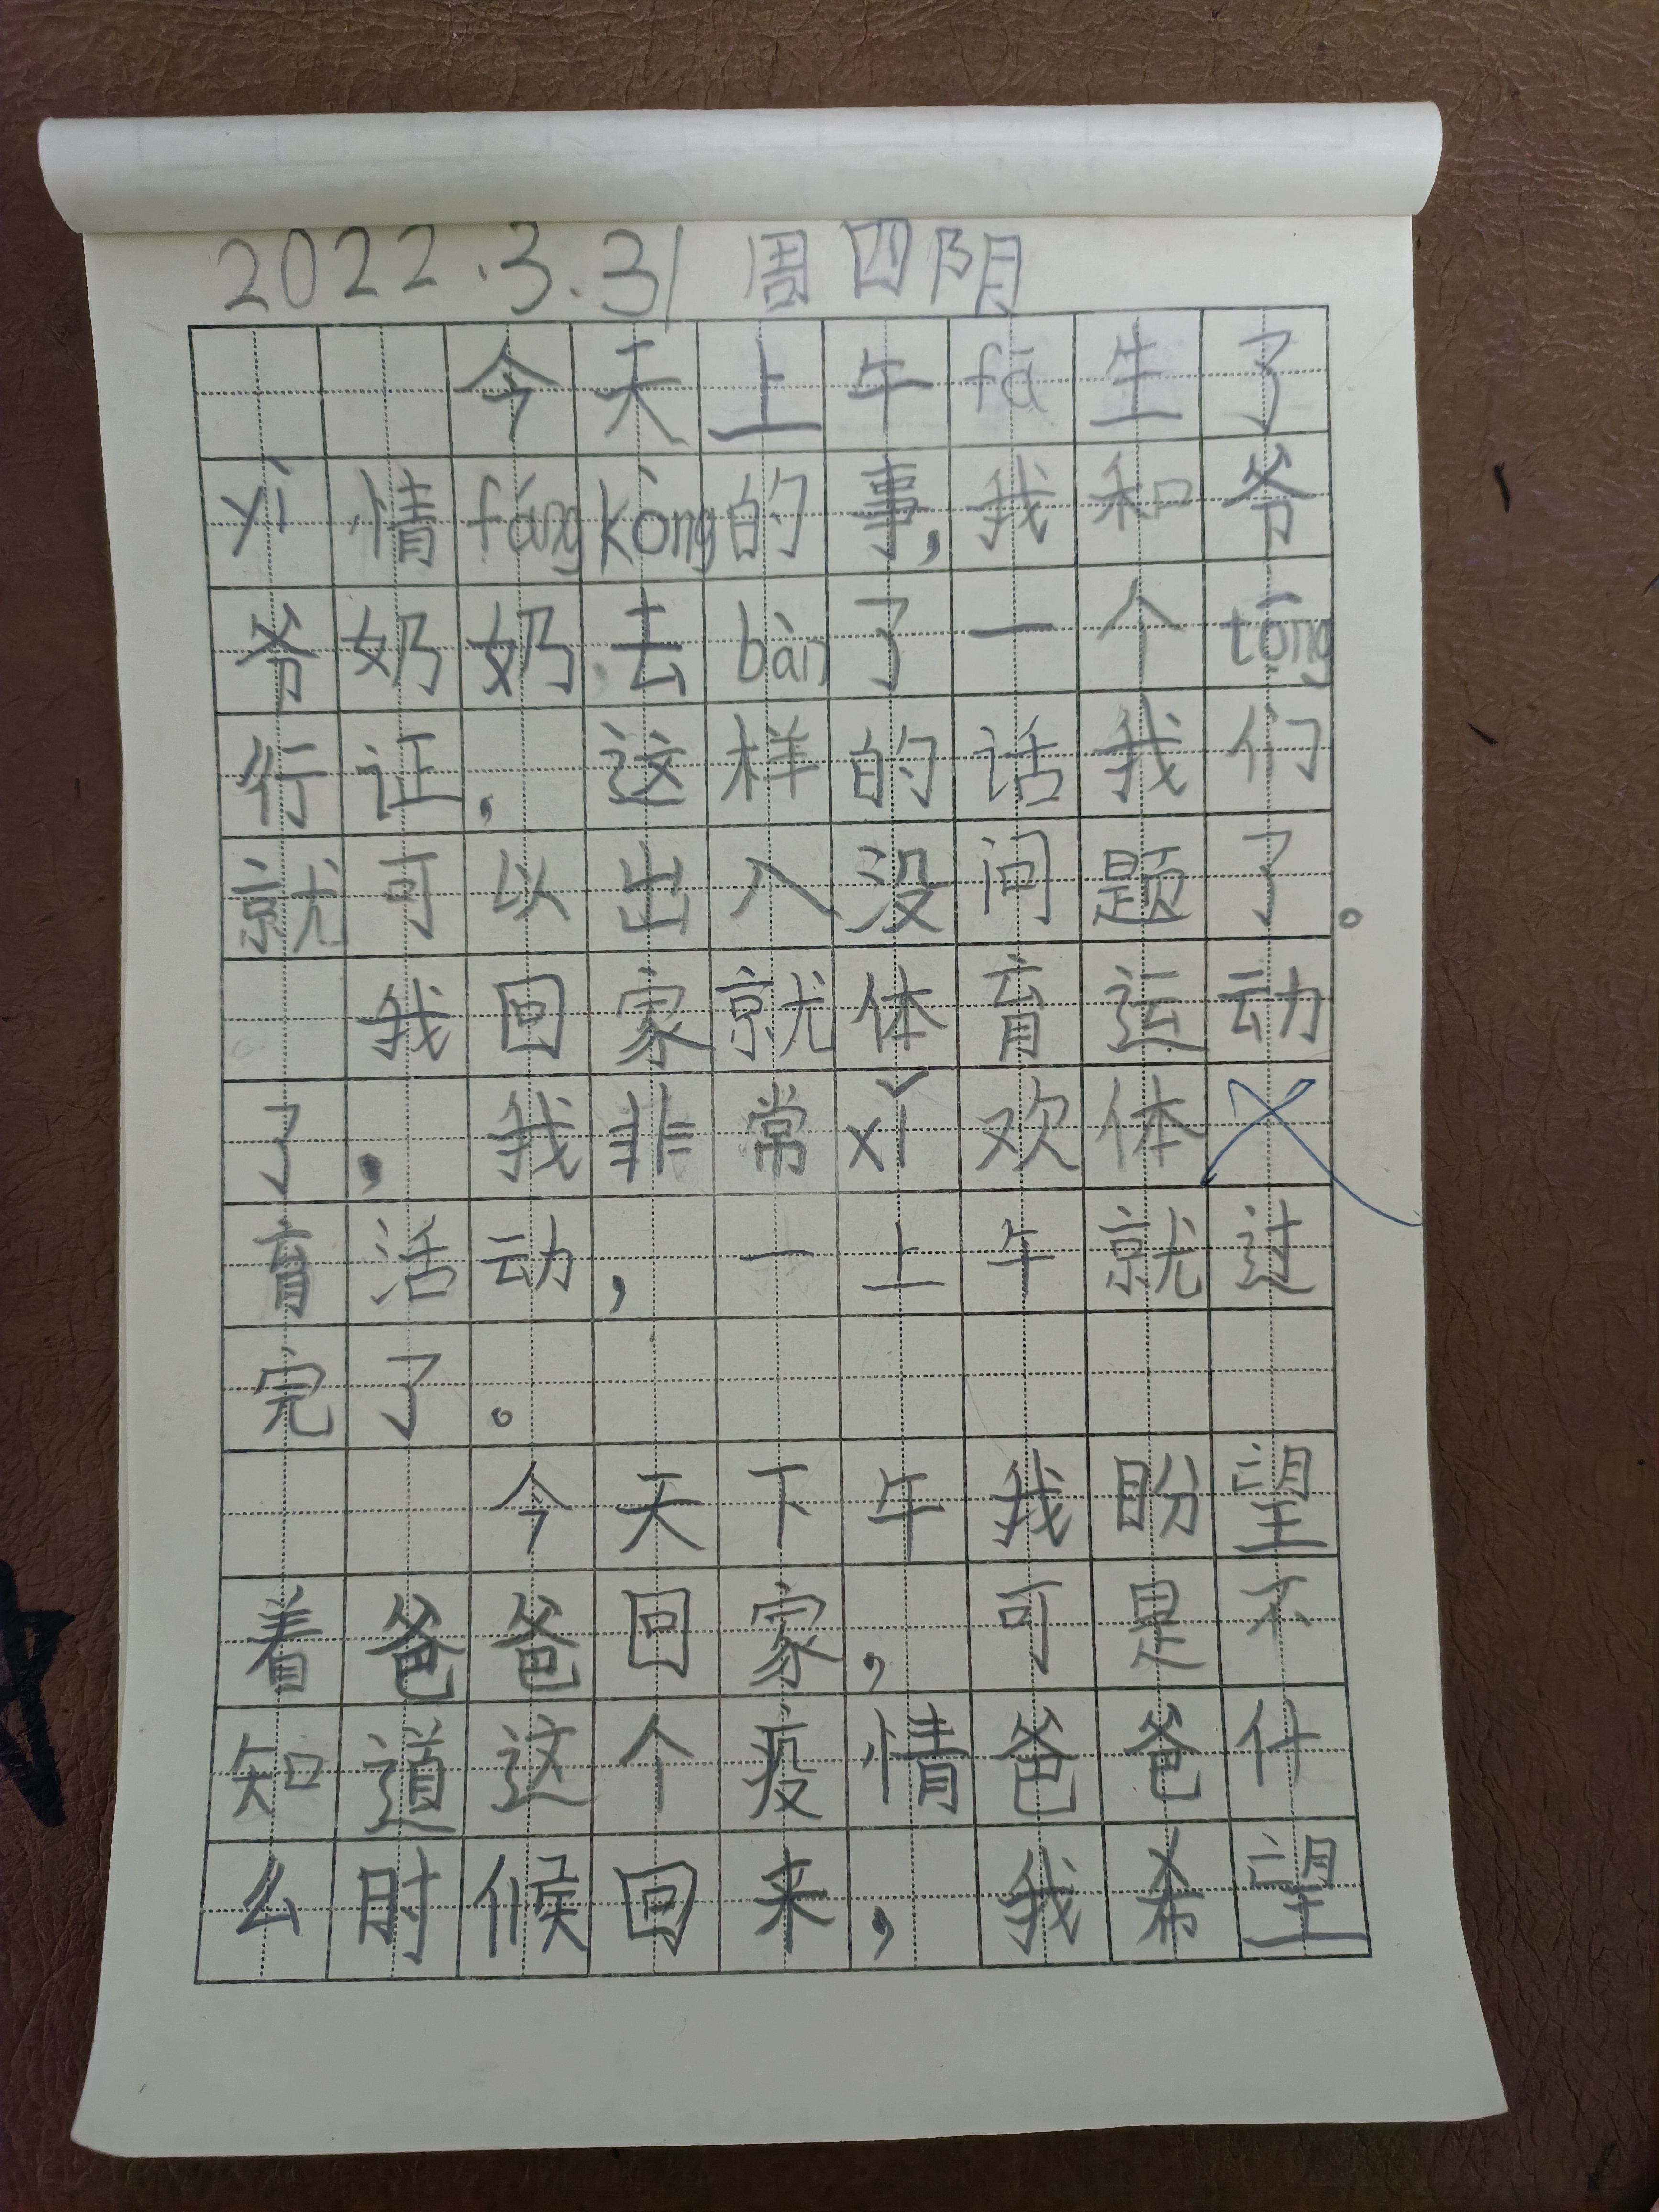 2022.3.31 周四阴
今天上午fā生了
yì情fángkòng的事,我和爷
爷奶奶去bàn了一个tōng
行证,这样的话我们
就可以出入没问题了。
我回家就体育运动
了.我非常xǐ欢体
育活动,一上午就过
完了。
今天下午我盼望
着爸爸回家,可是不
知道这个疫情爸爸什
么时候回来,我希望